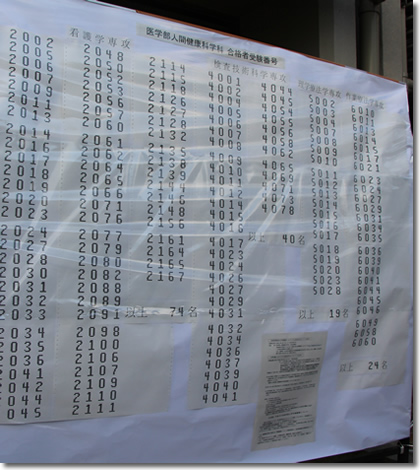 医学部人間健康科学科 合格者受験番号
看護学専攻
2002
2005
2006
2007
2009
2011
2013
2014
2016
2017
2018
2019
2020
2023
2024
2027
2028
2030
2031
2032
2033
2034
2035
2036
2041
2042
2044
2045
2048
2050
2052
2053
2056
2057
2060
2061
2062
2064
2065
2066
2071
2076
2077
2079
2080
2082
2088
2089
2091
2098
2100
2106
2107
2109
2110
2111
2114
2126
2127
2132
2135
2148
2156
2161
2167
以上 74名
検査技術科学専攻
4001
4002
4004
4005
4007
4008
4009
4010
4011
4012
4014
4015
4016
4017
4023
4024
4026
4027
4029
4031
4032
4034
4036
4037
4039
4040
4041
4044
4045
4054
4055
4056
4057
4058
4062
4065
4071
4073
4078
以上 40名
理学療法学専攻
5002
5003
5004
5007
5008
5009
5010
5011
5012
5013
5014
5015
5016
5017
5018
5019
5020
5023
5028
以上 19名
作業療法学専攻
6010
6011
6013
6014
6015
6017
6021
6023
6024
6027
6029
6031
6034
6035
6036
6038
6040
6041
6044
6045
6046
6049
6058
6060
以上 24名